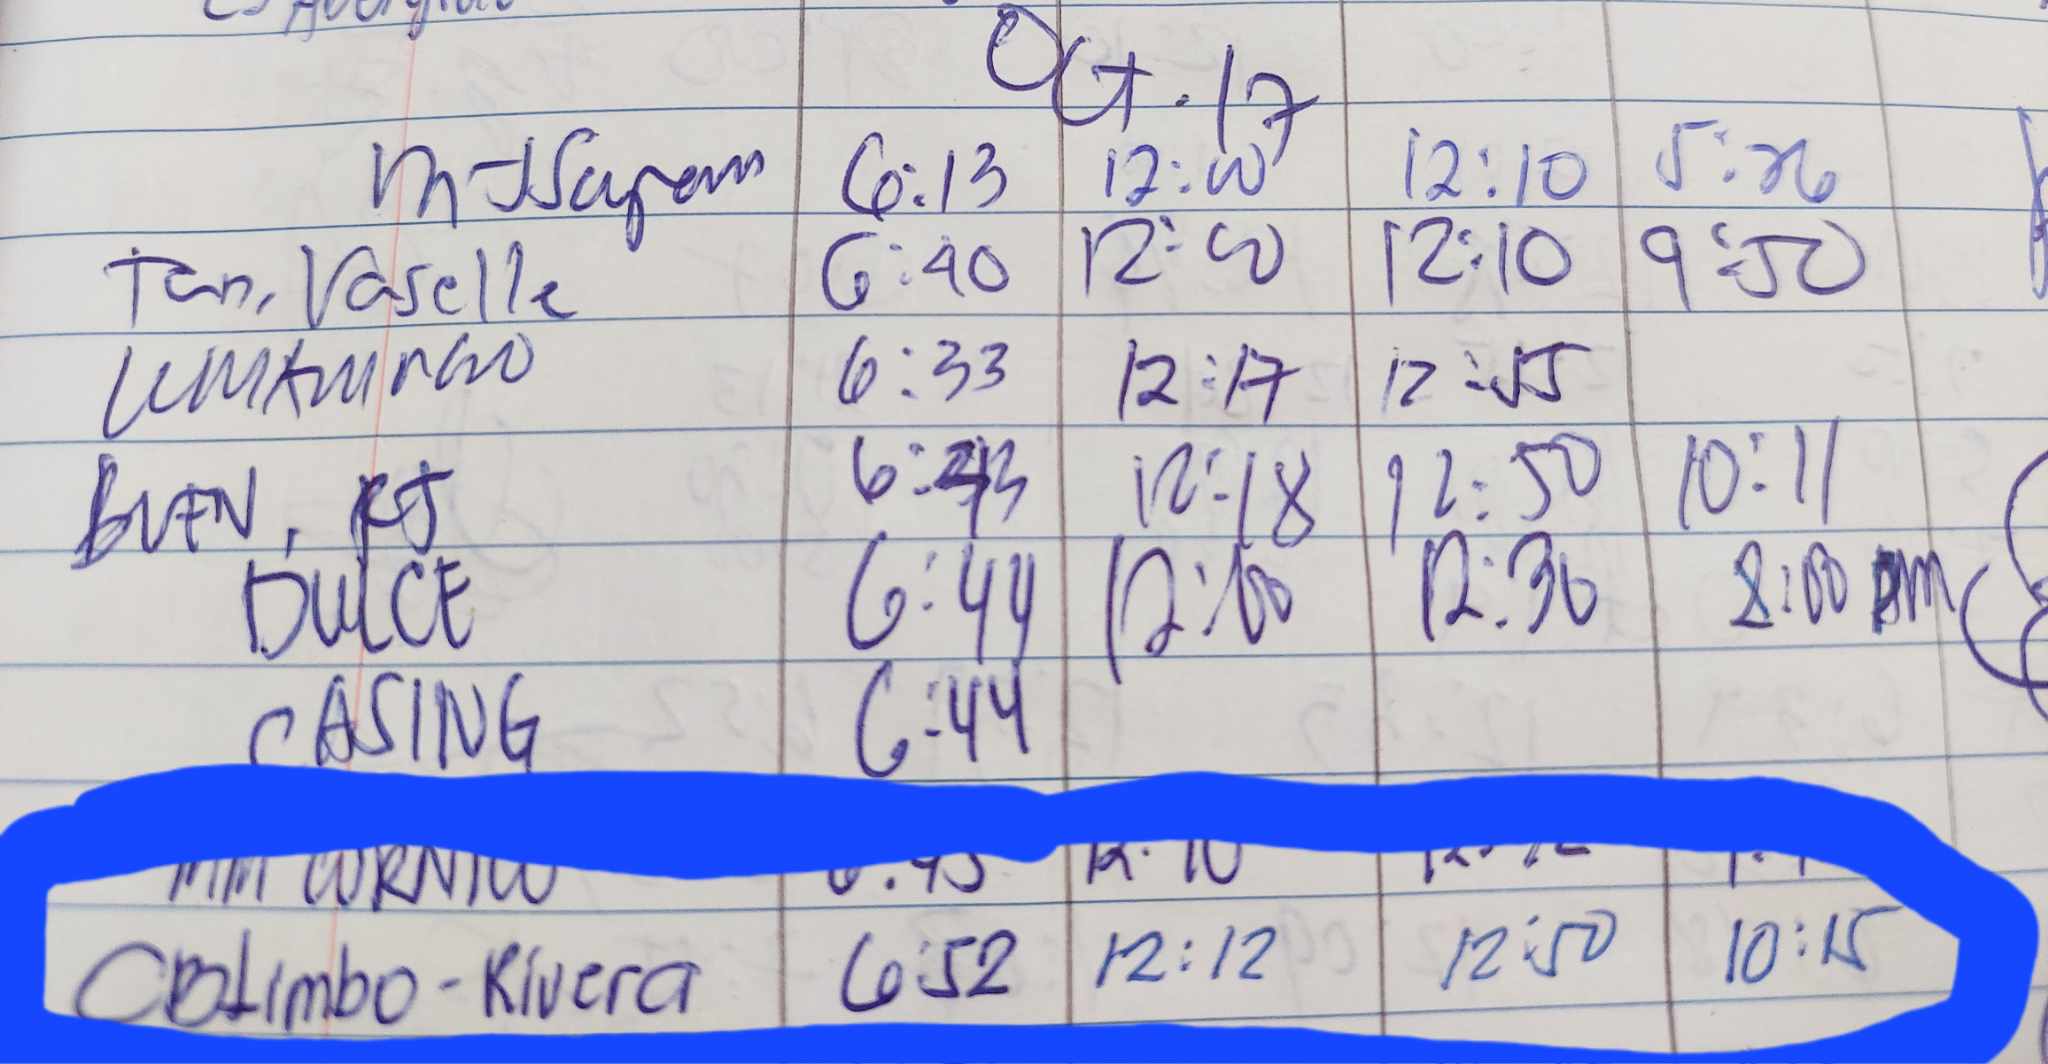 Oct. 17
6:13 12:00 12:10 5:26
Tan, Vaselle 6:40 12:00 12:10 9:50
6:33 12:17 12:55
BUEN, RJ 6:43 12:18 12:50 10:11
DULCE 6:44 12:00 12:30 8:00 PM
CASING 6:44
6:45 12:10
Catimbo-Rivera 6:52 12:12 12:50 10:15